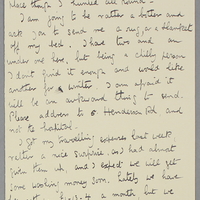 place though I
I am going to be rather a bother and
ask you to send me a rug or a blanket
off my bed. I have two and an
under me here, but being a chilly person
I don't find it enough and would like
another for winter. I am afraid it
will be an awkward thing to send.
Please address to 6 Henderson Rd and
not to
I got my travelling expenses last week
rather a nice surprise, as I had almost
given them up, and I expect we will get
some washing money soon. Lately we have
a month but we